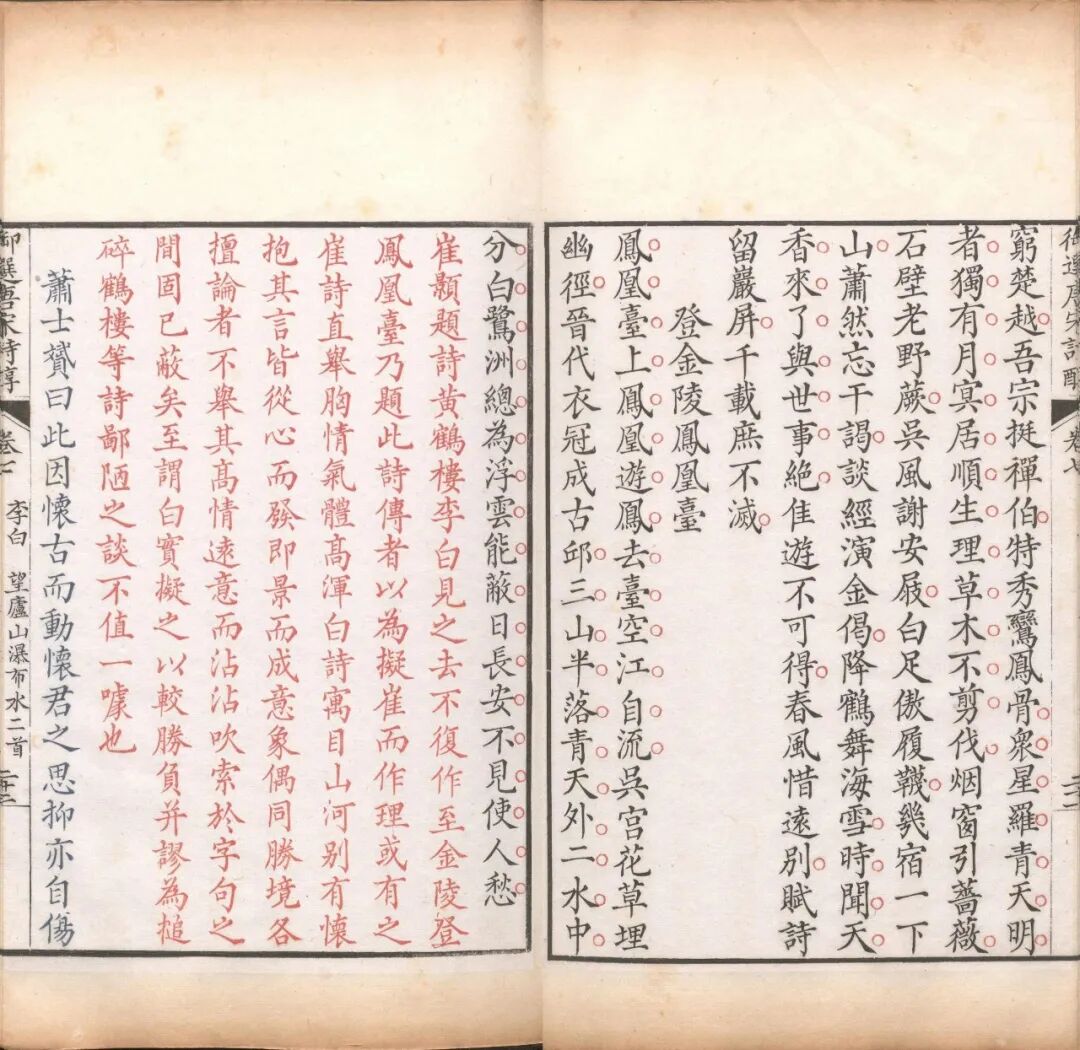 窮楚越吾宗挺禪伯特秀鸞鳳骨衆星羅青天明
者獨有月冥居順生理草木不剪伐烟窗引薔薇
石壁老野蕨吳風謝安屐白足傲履韈幾宿一下
山蕭然忘干謁談經演金偈降鶴舞海雪時聞天
香來了與世事絶佳遊不可得春風惜遠別賦詩
留巖屏千載庶不滅
登金陵鳳凰臺
鳳凰臺上鳳凰遊鳳去臺空江自流吳宮花草埋
幽徑晉代衣冠成古邱三山半落青天外二水中
分白鷺洲總為浮雲能蔽日長安不見使人愁
崔顥題詩黃鶴樓李白見之去不復作至金陵登
鳳凰臺乃題此詩傳者以為擬崔而作理或有之
崔詩直舉胸情氣體高渾白詩寓目山河別有懷
抱其言皆從心而發即景而成意象偶同勝境各
擅論者不舉其高情遠意而沾沾吹索於字句之
間固已蔽矣至謂白實擬之以較勝負并謬為搥
碎鶴樓等詩鄙陋之談不值一噱也
蕭士贇曰此因懷古而動懷君之思抑亦自傷
御選唐宋詩醇
卷七
李白 望廬山瀑布水二首